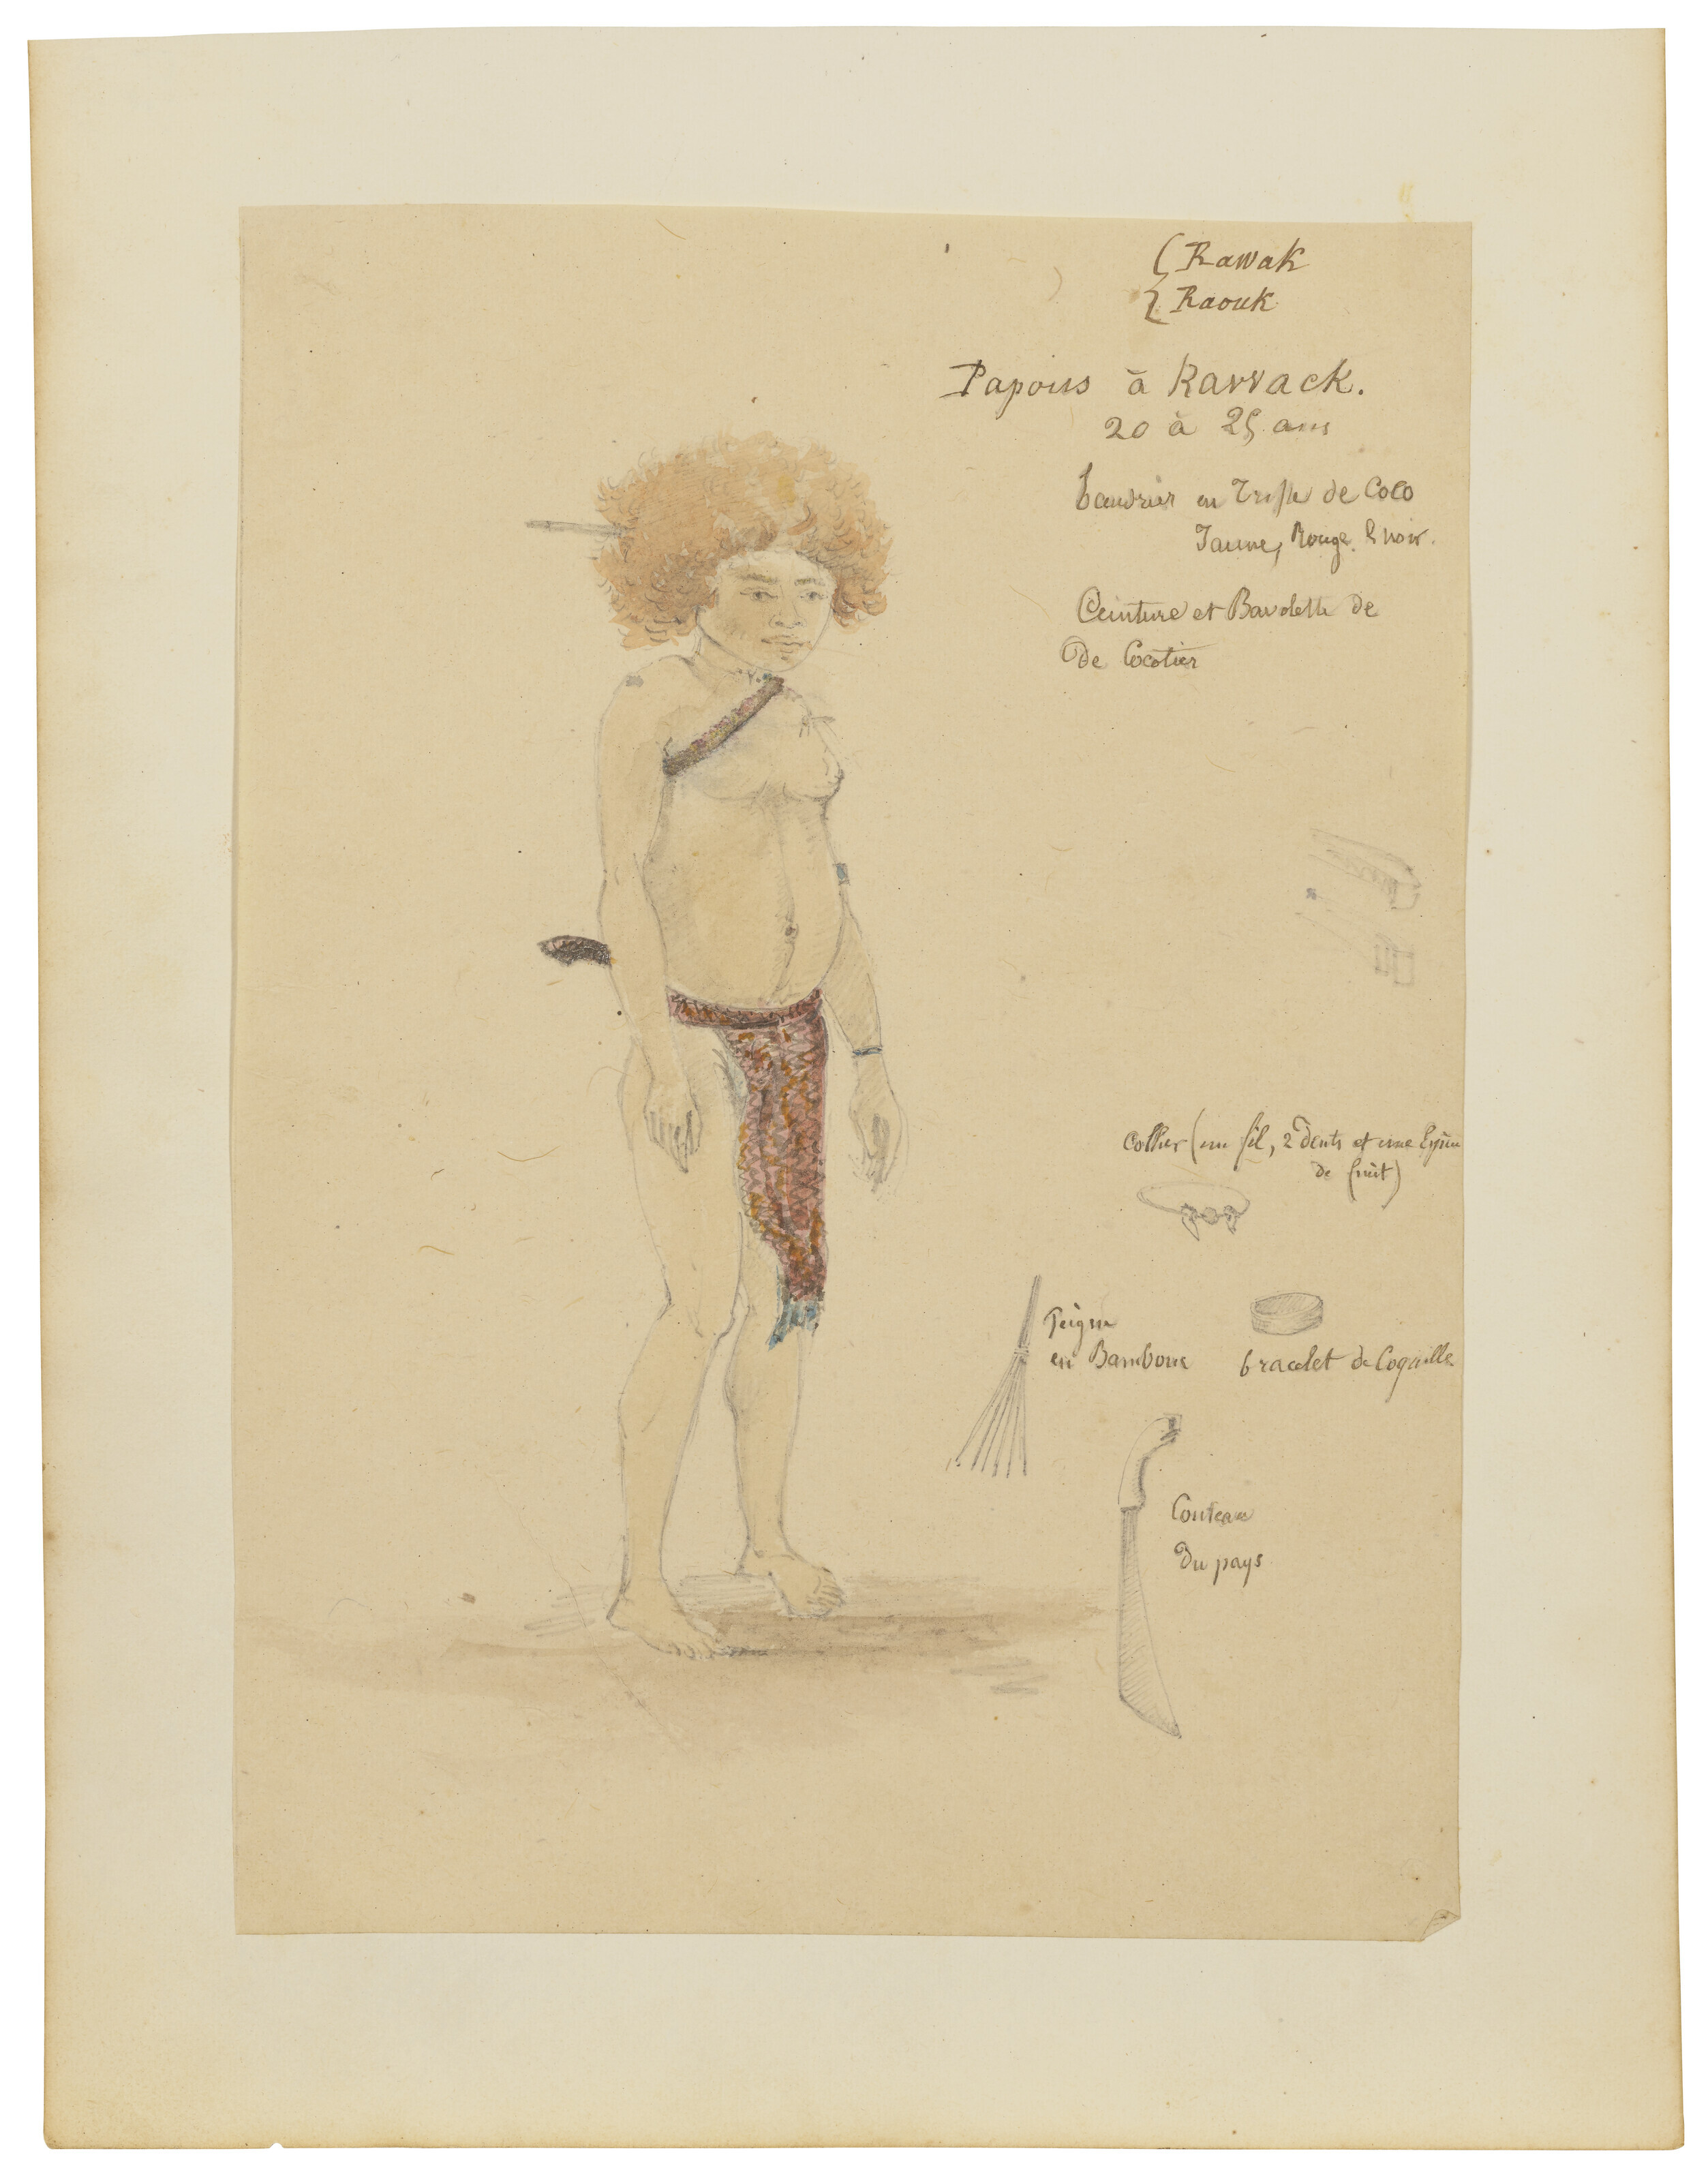 Rawak
Raouk
Papous à Rawack.
20 à 25 ans
baudrier en Tresse de Coco
Jaune, Rouge & noir.
Ceinture et Bavolette de
De Cocotier
Collier (un fil, 2 Dents et une
de fruit)
Peigne
en Bambou
bracelet de Coquille
Couteau
Du pays